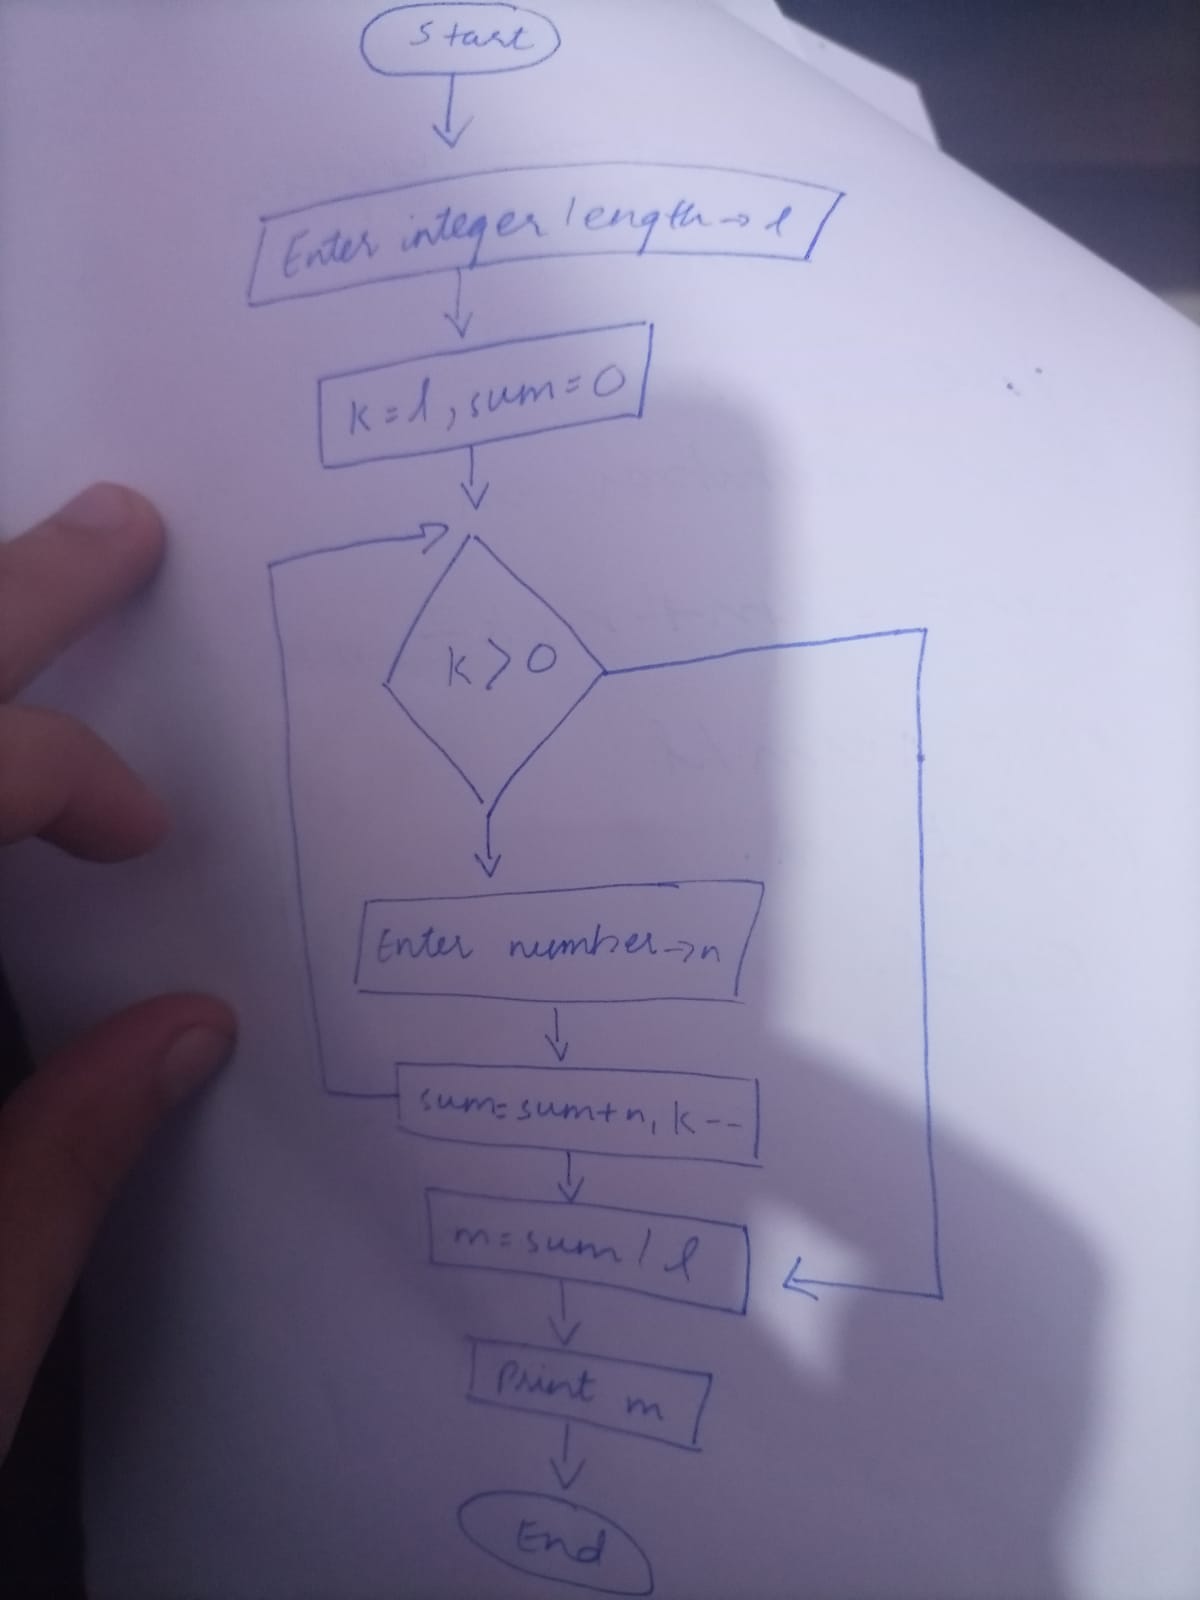 Start
Enter integer length → l
k = l, sum = 0
k > 0
Enter number → n
sum = sum + n, k --
m = sum / l
Print m
End